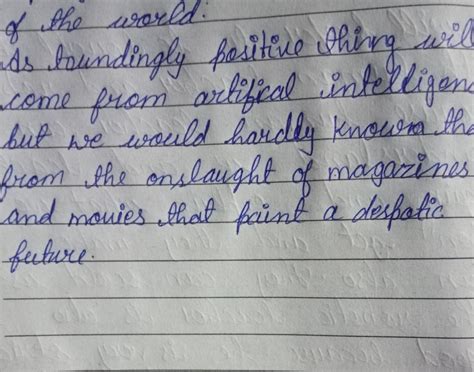 of the world.
As toundingly positive thing will
come from artifical intelligenc
but we would hardly known the
from the onslaught of magazines
and movies that paint a despatic
future.